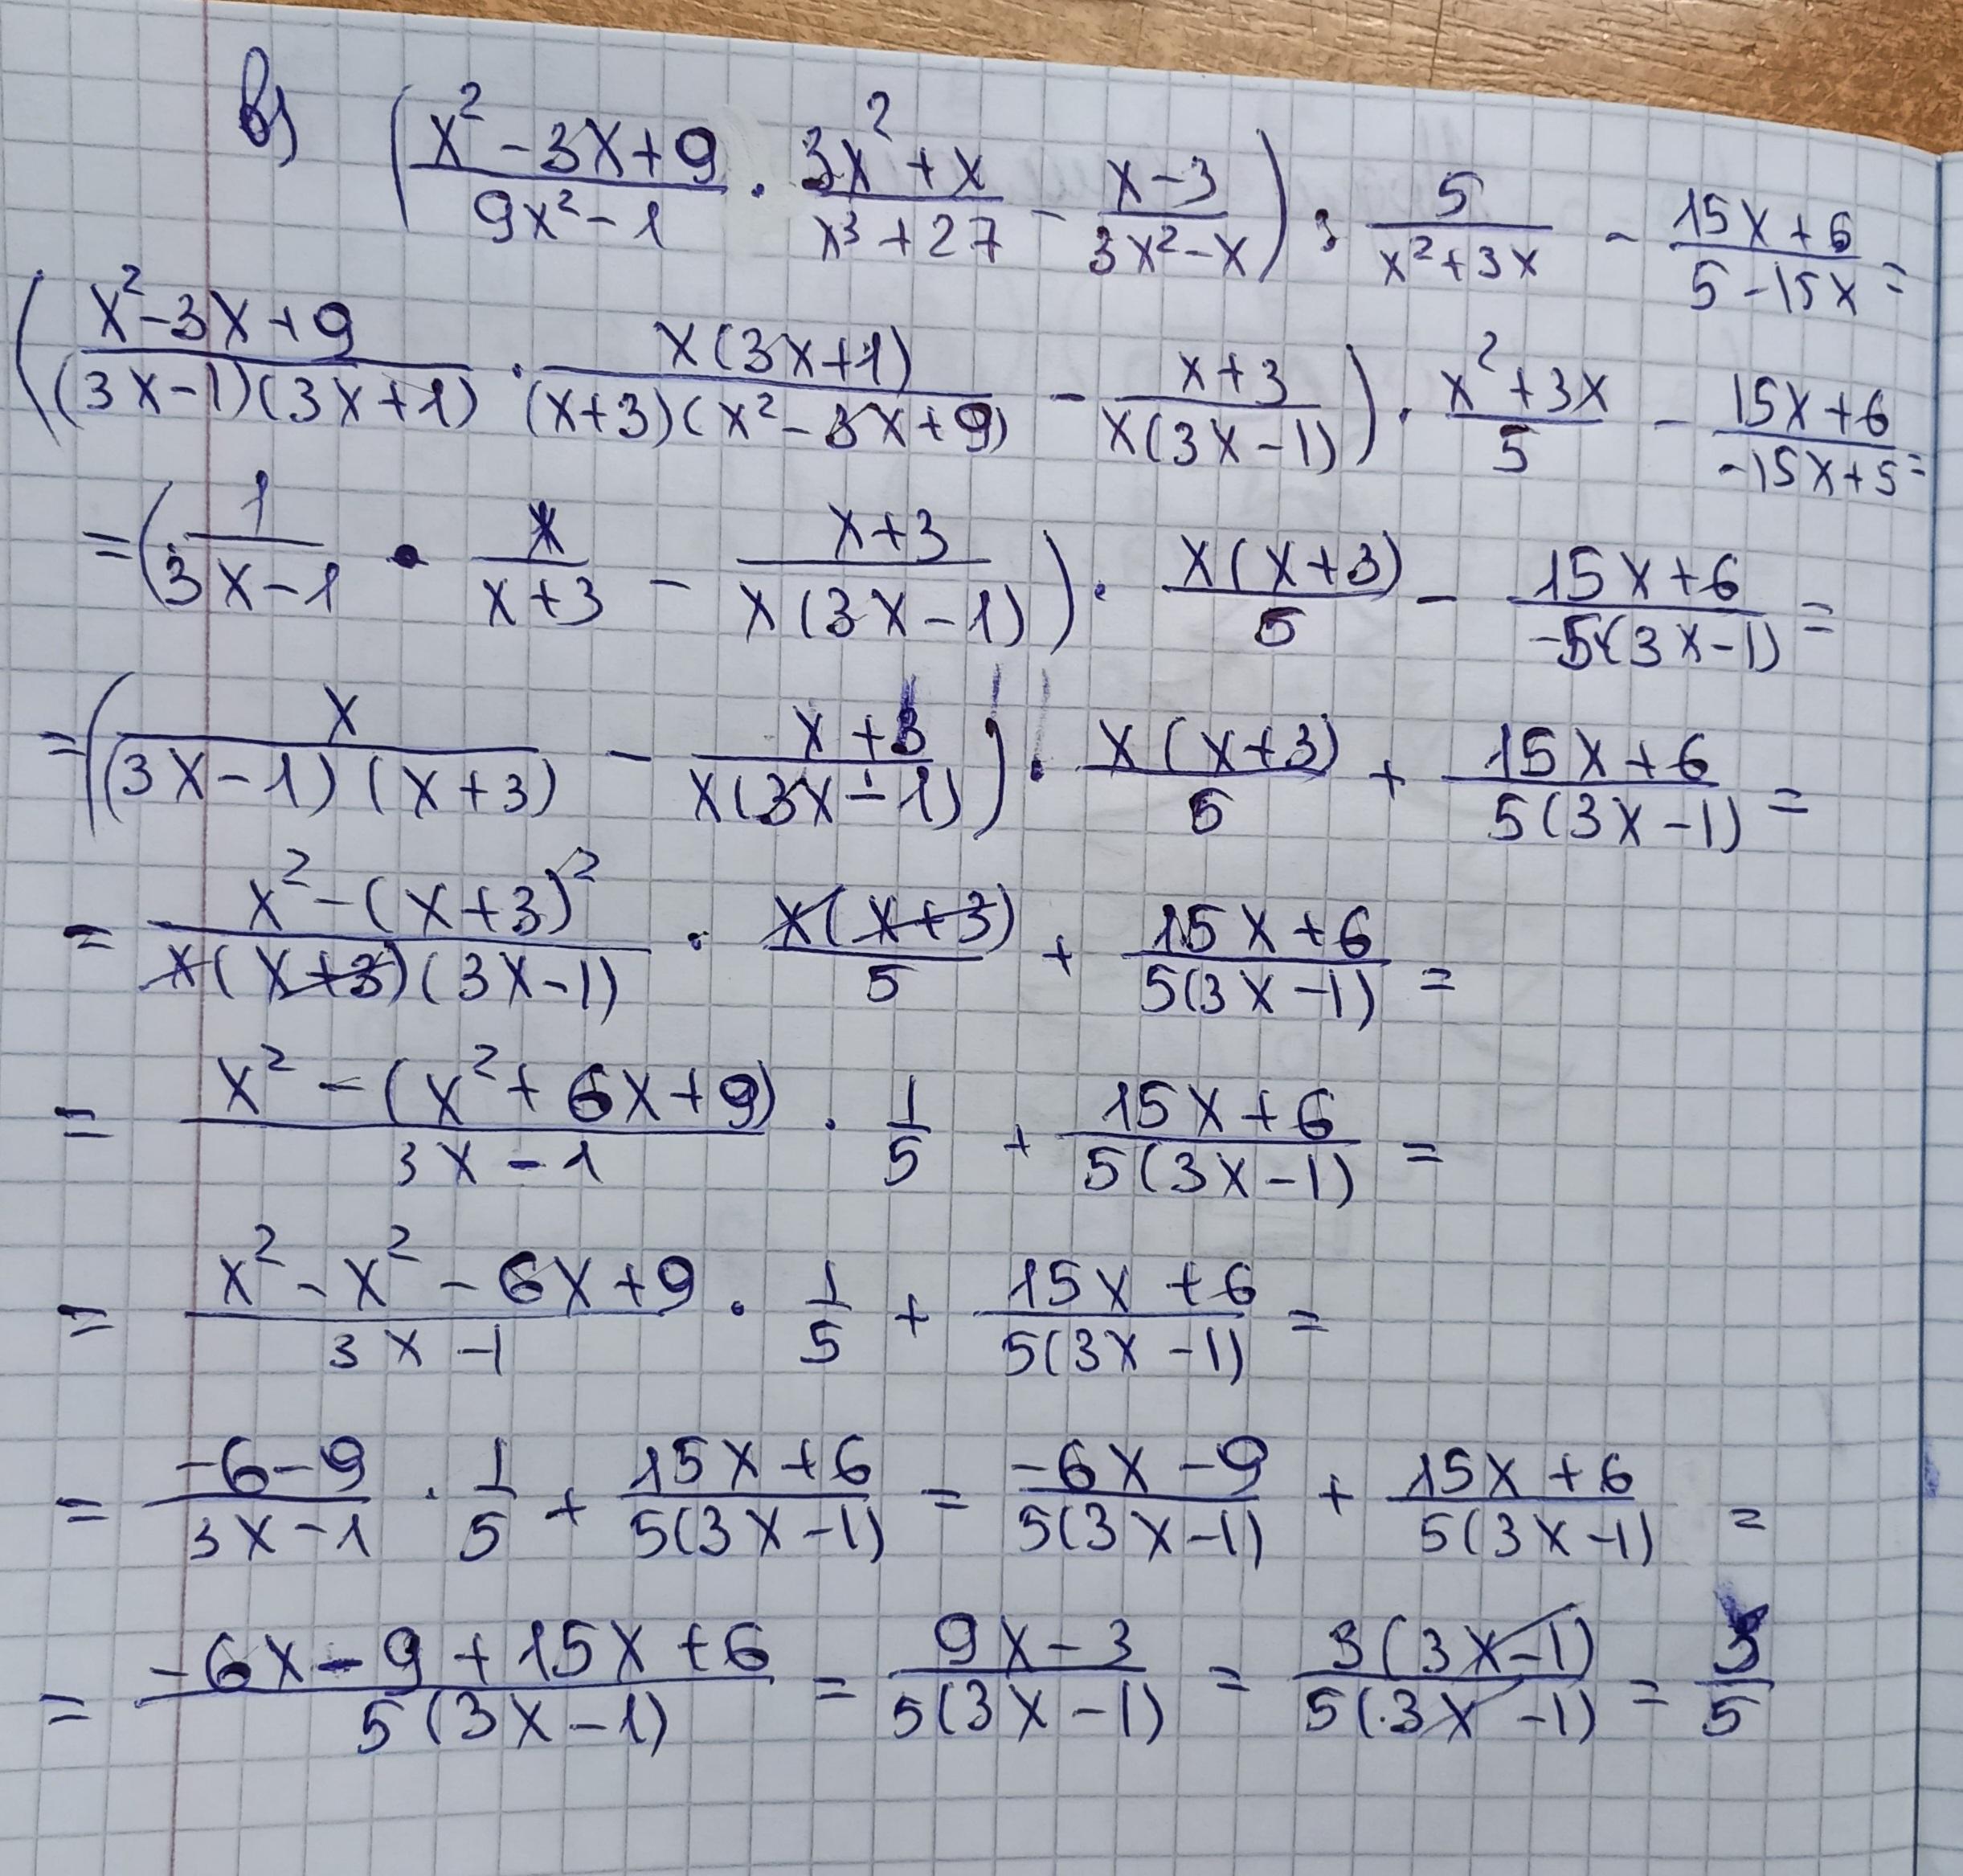 в) ( (x² - 3x + 9)/(9x² - 1) · (3x² + x)/(x³ + 27) - (x - 3)/(3x² - x) ) : 5/(x² + 3x) - (15x + 6)/(5 - 15x) =
( (x² - 3x + 9)/((3x - 1)(3x + 1)) · x(3x + 1)/((x + 3)(x² - 3x + 9)) - (x + 3)/(x(3x - 1)) ) · (x² + 3x)/5 - (15x + 6)/(-15x + 5) =
= ( 1/(3x - 1) · x/(x + 3) - (x + 3)/(x(3x - 1)) ) · x(x + 3)/5 - (15x + 6)/(-5(3x - 1)) =
= ( x/((3x - 1)(x + 3)) - (x + 3)/(x(3x - 1)) ) · x(x + 3)/5 + (15x + 6)/(5(3x - 1)) =
= (x² - (x + 3)²)/(x(x + 3)(3x - 1)) · x(x + 3)/5 + (15x + 6)/(5(3x - 1)) =
= (x² - (x² + 6x + 9))/(3x - 1) · 1/5 + (15x + 6)/(5(3x - 1)) =
= (x² - x² - 6x + 9)/(3x - 1) · 1/5 + (15x + 6)/(5(3x - 1)) =
= (-6 - 9)/(3x - 1) · 1/5 + (15x + 6)/(5(3x - 1)) = (-6x - 9)/(5(3x - 1)) + (15x + 6)/(5(3x - 1)) =
= (-6x - 9 + 15x + 6)/(5(3x - 1)) = (9x - 3)/(5(3x - 1)) = 3(3x - 1)/(5(3x - 1)) = 3/5